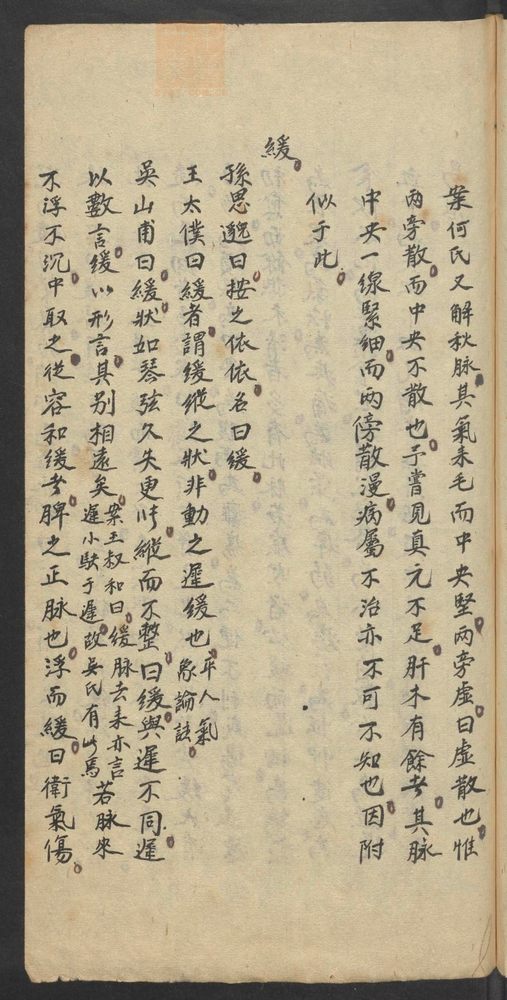 案何氏又解秋脉其氣来毛而中央堅兩旁虛曰虛散也惟
兩旁散而中央不散也予嘗見真元不足肝木有餘者其脉
中央一線緊細而兩傍散漫病屬不治亦不可不知也因附
似于此
緩
孫思邈曰按之依依名曰緩
王太僕曰緩者謂緩縱之狀非動之遲緩也平人氣象論註
吳山甫曰緩狀如琴弦久失更张縱而不整曰緩與遲不同遲
以數言緩以形言其別相遠矣案王叔和曰緩脉去来亦言遲小駃于遲故吳氏有此爲若脉來
不浮不沉中取之從容和緩者脾之正脉也浮而緩曰衛氣傷